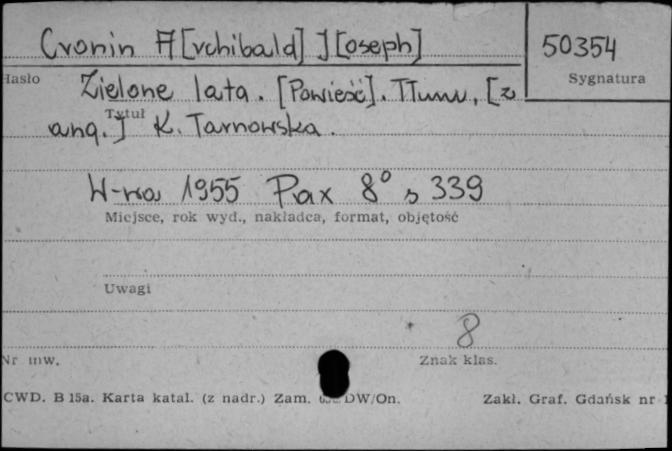 Cronin A[rchibald] J[oseph]
50354
Hasło
Sygnatura
Zielone lata. [Powieść]. Tłum. [z
Tytuł
ang.] K. Tarnowska.
W-wa 1955 Pax 8° s 339
Miejsce, rok wyd., nakładca, format, objętość
Uwagi
8
Nr inw.
Znak klas.
CWD. B 15a. Karta katal. (z nadr.) Zam. DW/On.
Zakł. Graf. Gdańsk nr